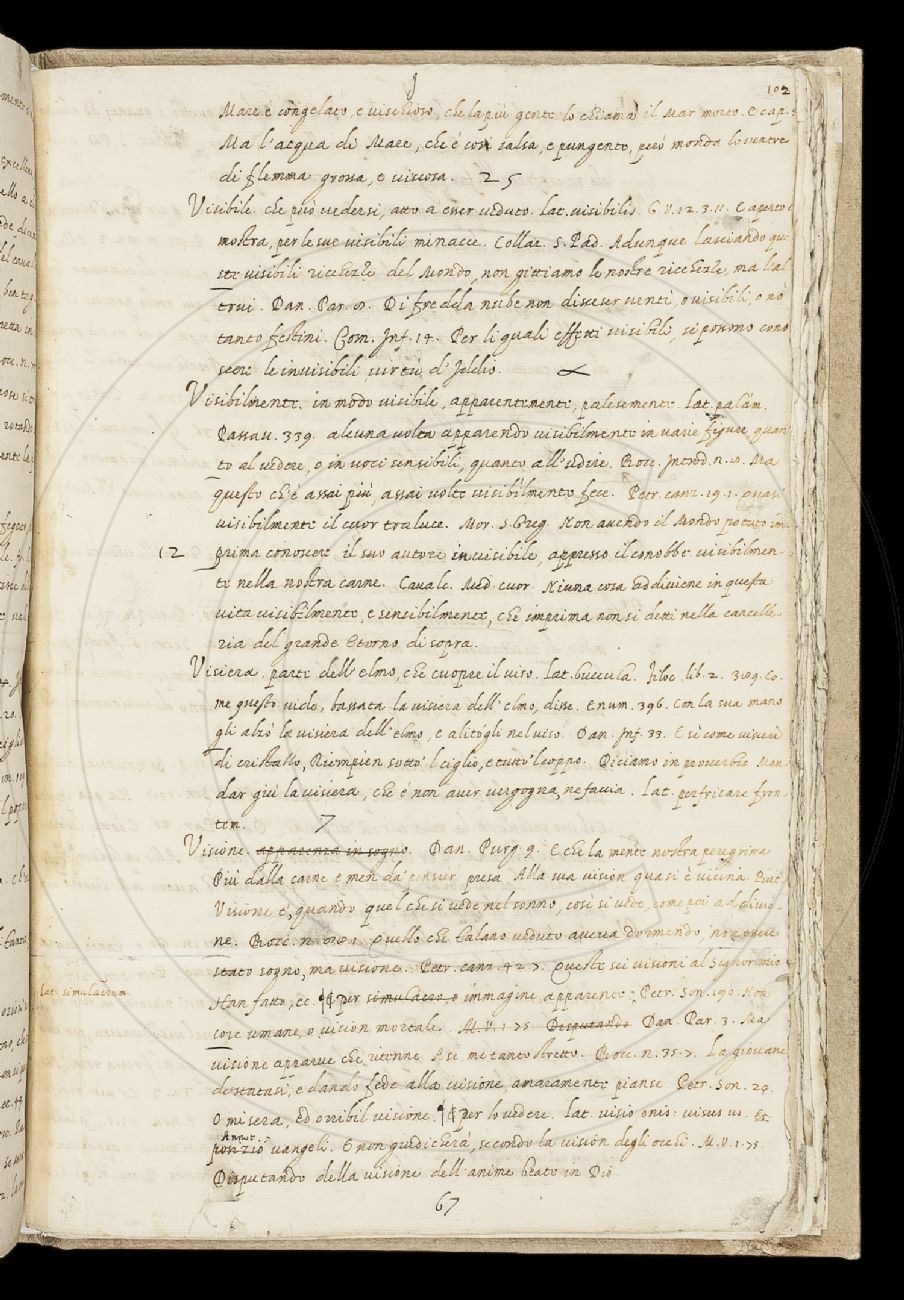 102
Mare è congelato, e viscidoso, che la più gente lo chiama il Mar morto. E cap:
Ma l'acqua di Mare, che è così salsa, e pungente, però monda lo ventre
di flemma grossa, e viscosa. 25
Visibile. che può vedersi, atto a esser veduto. Lat. visibilis. G. V. 12. 3. 11. E aperto ci
mostra, per le sue visibili minacce. Collaz. S. Pad. Adunque lasciando que
ste visibili ricchezze del Mondo, non gittiamo le nostre ricchezze, ma l'al
trui. Dan. Par. 8. Di fredda nube non disceser venti, o visibili, o nò
tanto festini. Com. Inf. 14. Per li quali effetti visibili, si possono cono
scere le invisibili virtù d'Iddio.
Visibilmente. in modo visibile, apparentemente, palesemente. Lat. palàm.
Passav. 339. alcuna volta apparendo visibilmente in varie figure, quan
to al vedere, o in voci sensibili, quanto all'udire. Bocc. Introd. n. 8. Ma
questo ch'è assai più, assai volte visibilmente fece. Petr. canz. 19. 1. quasi
visibilmente il cuor traluce. Mor. S. Greg. Non avendo il Mondo potuto im
12 prima conoscere il suo autore invisibile, appresso il conobbe visibilmen-
te nella nostra carne. Cavalc. Med. cuor. Niuna cosa addiviene in questa
vita visibilmente, e sensibilmente, che imprima non si detti nella cancelle-
ria del grande Eterno di sopra.
Visiera. parte dell'elmo, che cuopre il viso. Lat. buccula. Filoc. lib. 2. 389. Co-
me questo vide, bassata la visiera dell'elmo, disse. E num. 396. Con la sua mano
gli alzò la visiera dell'elmo, e alitógli nel viso. Dan. Inf. 33. E sì come visiere
di cristallo, Riempien sotto 'l ciglio, e tutto 'l coppo. Diciamo in proverbio Man-
dar giù la visiera, che è non aver vergogna, ne favia. Lat. perfricare fron-
tem. 7
Visione. apparenza in sogno. Dan. Purg. 9. E che la mente nostra peregrina
Più dalla carne e men da' pensier presa Alla sua vision quasi è vicina. But.
Visione è, quando quel che si vede nel sonno, così si vede, come poi addivie-
ne. Bocc. n. Quello che Calano veduto aveva dormendo non essere
stato sogno, ma visione. Petr. canz. 42. 7. Queste sei visioni al Signor mio
Lat. simulacrum
Han fatto, ec. ¶ per simulacro, o immagine apparente. Petr. Son. 190. Non
cose umane, o vision mortale. M. V. 1. 75. Disputando. Dan. Par. 3. Ma
visione apparve che ritenne A se me tanto stretto. Bocc. n. 35. 7. La giovane
destatasi, e dando fede alla visione, amaramente pianse. Petr. Son. 29.
O misera, ed orribil visione. ¶ per lo vedere. Lat. visio onis: visus us. Et
Annot.
vangeli. E non giudicherà, secondo la vision degli occhi. M. V. 1. 75.
Disputando della visione dell'anime beate in Dio
67